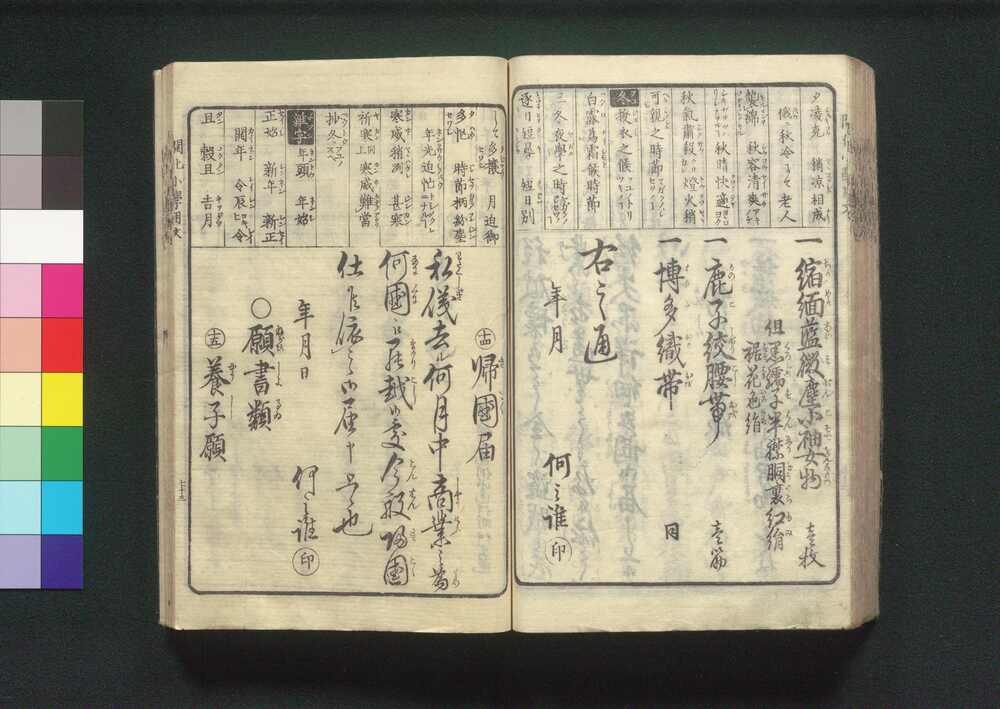 夕凌克 稍涼相成
俄秋冷にて 老人
装綿 秋容清爽
秋晴快適
秋気粛殺 燈火稍
可親之時節
冬 撤衣之候
白露為霜候時節
三冬夜學之時
逐日短晷 短日別
一縮緬藍微塵小袖女物 壱枚
但黒繻子半襟胴裏紅絹
裾花色絹
一鹿子絞腰帯 壱筋
一博多織帯 同
右之通
年月
何之誰 印
多攘 月迫御
多忙 時節柄紛塵
年光迫忙
寒威稍測 甚寒
祈寒上 寒威難當
抄冬
年頭 年始
正始 新年 新正
開年 令辰 令
且 穀且 吉月
十四 帰國届
私儀去ル何月中商業之為
何國江罷越候處今般帰國
仕候依之御届申上候也
年月日
何之誰 印
○願書類
十五 養子願
開化小學用文
七十九